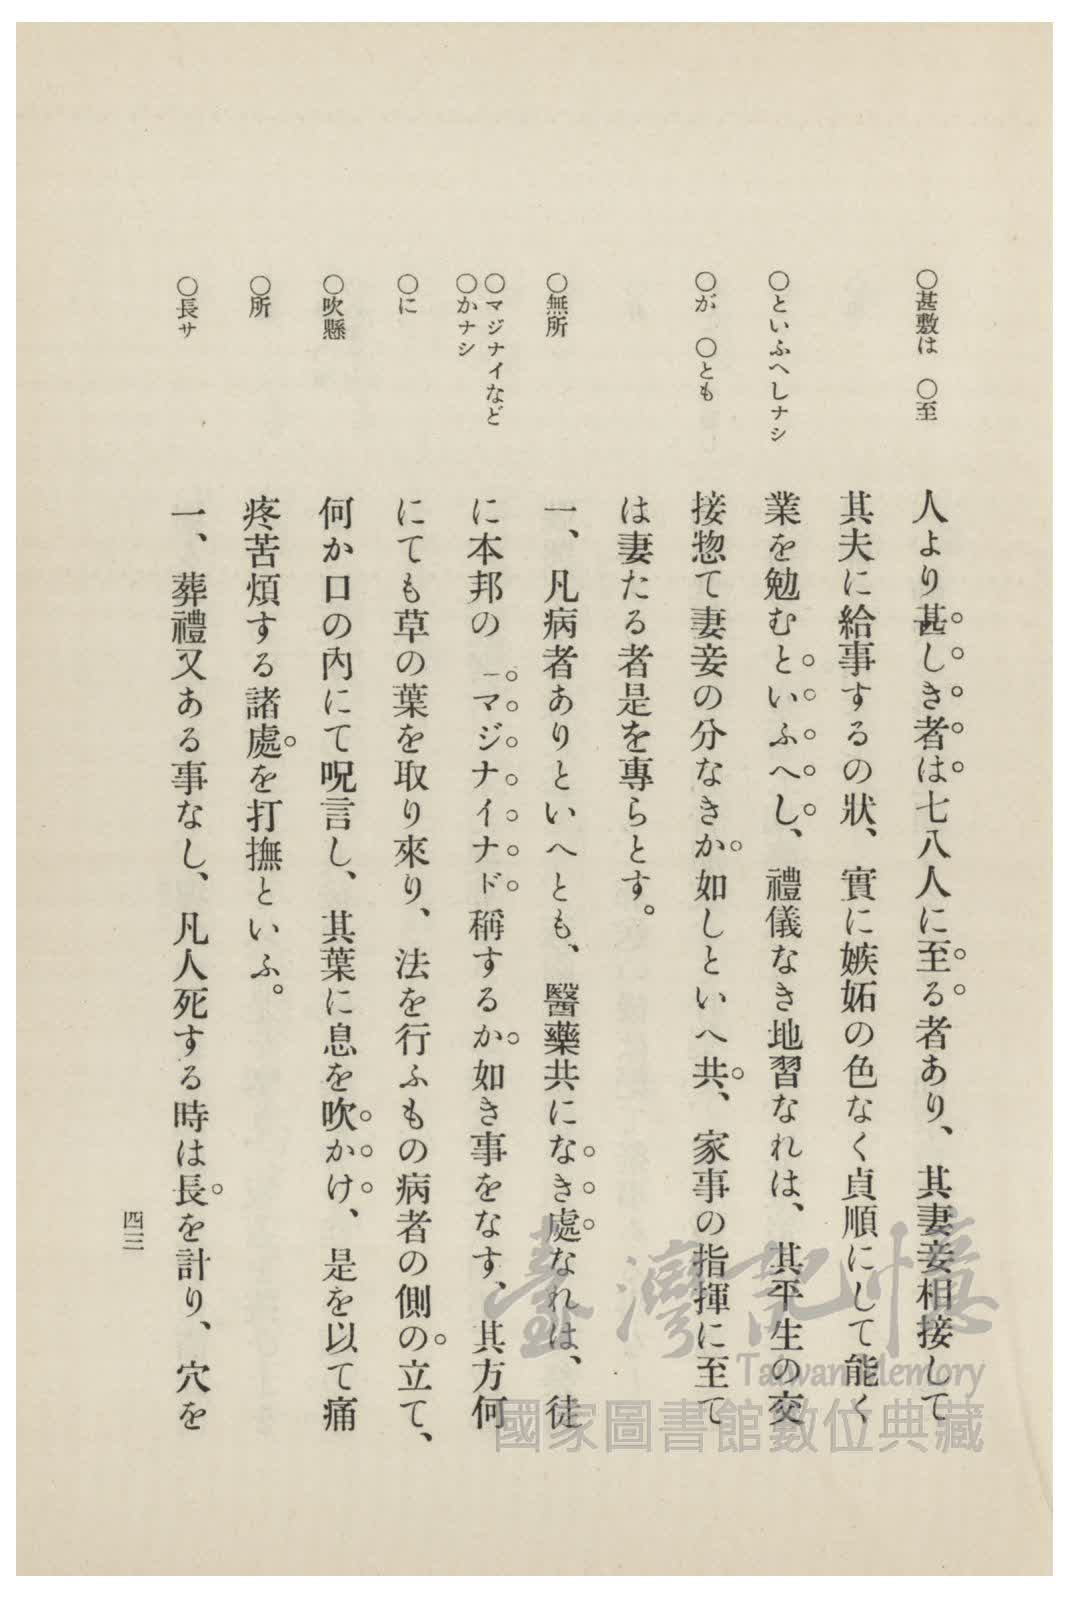 ○甚敷は　○至
○といふへしナシ
○が　○とも
○無所
○マジナイなど
○かナシ
○に
○吹懸
○所
○長サ
人より甚しき者は七八人に至る者あり、其妻妾相接して
其夫に給事するの狀、實に嫉妬の色なく貞順にして能く
業を勉むといふへし、禮儀なき地習なれは、其平生の交
接惣て妻妾の分なきか如しといへ共、家事の指揮に至て
は妻たる者是を專らとす。
一、凡病者ありといへとも、醫藥共になき處なれは、徒
に本邦の「マジナイナド稱するか如き事をなす、其方何
にても草の葉を取り來り、法を行ふもの病者の側の立て、
何か口の內にて呪言し、其葉に息を吹かけ、是を以て痛
疼苦煩する諸處を打撫といふ。
一、葬禮又ある事なし、凡人死する時は長を計り、穴を
四三
臺灣記憶
Taiwan Memory
國家圖書館數位典藏